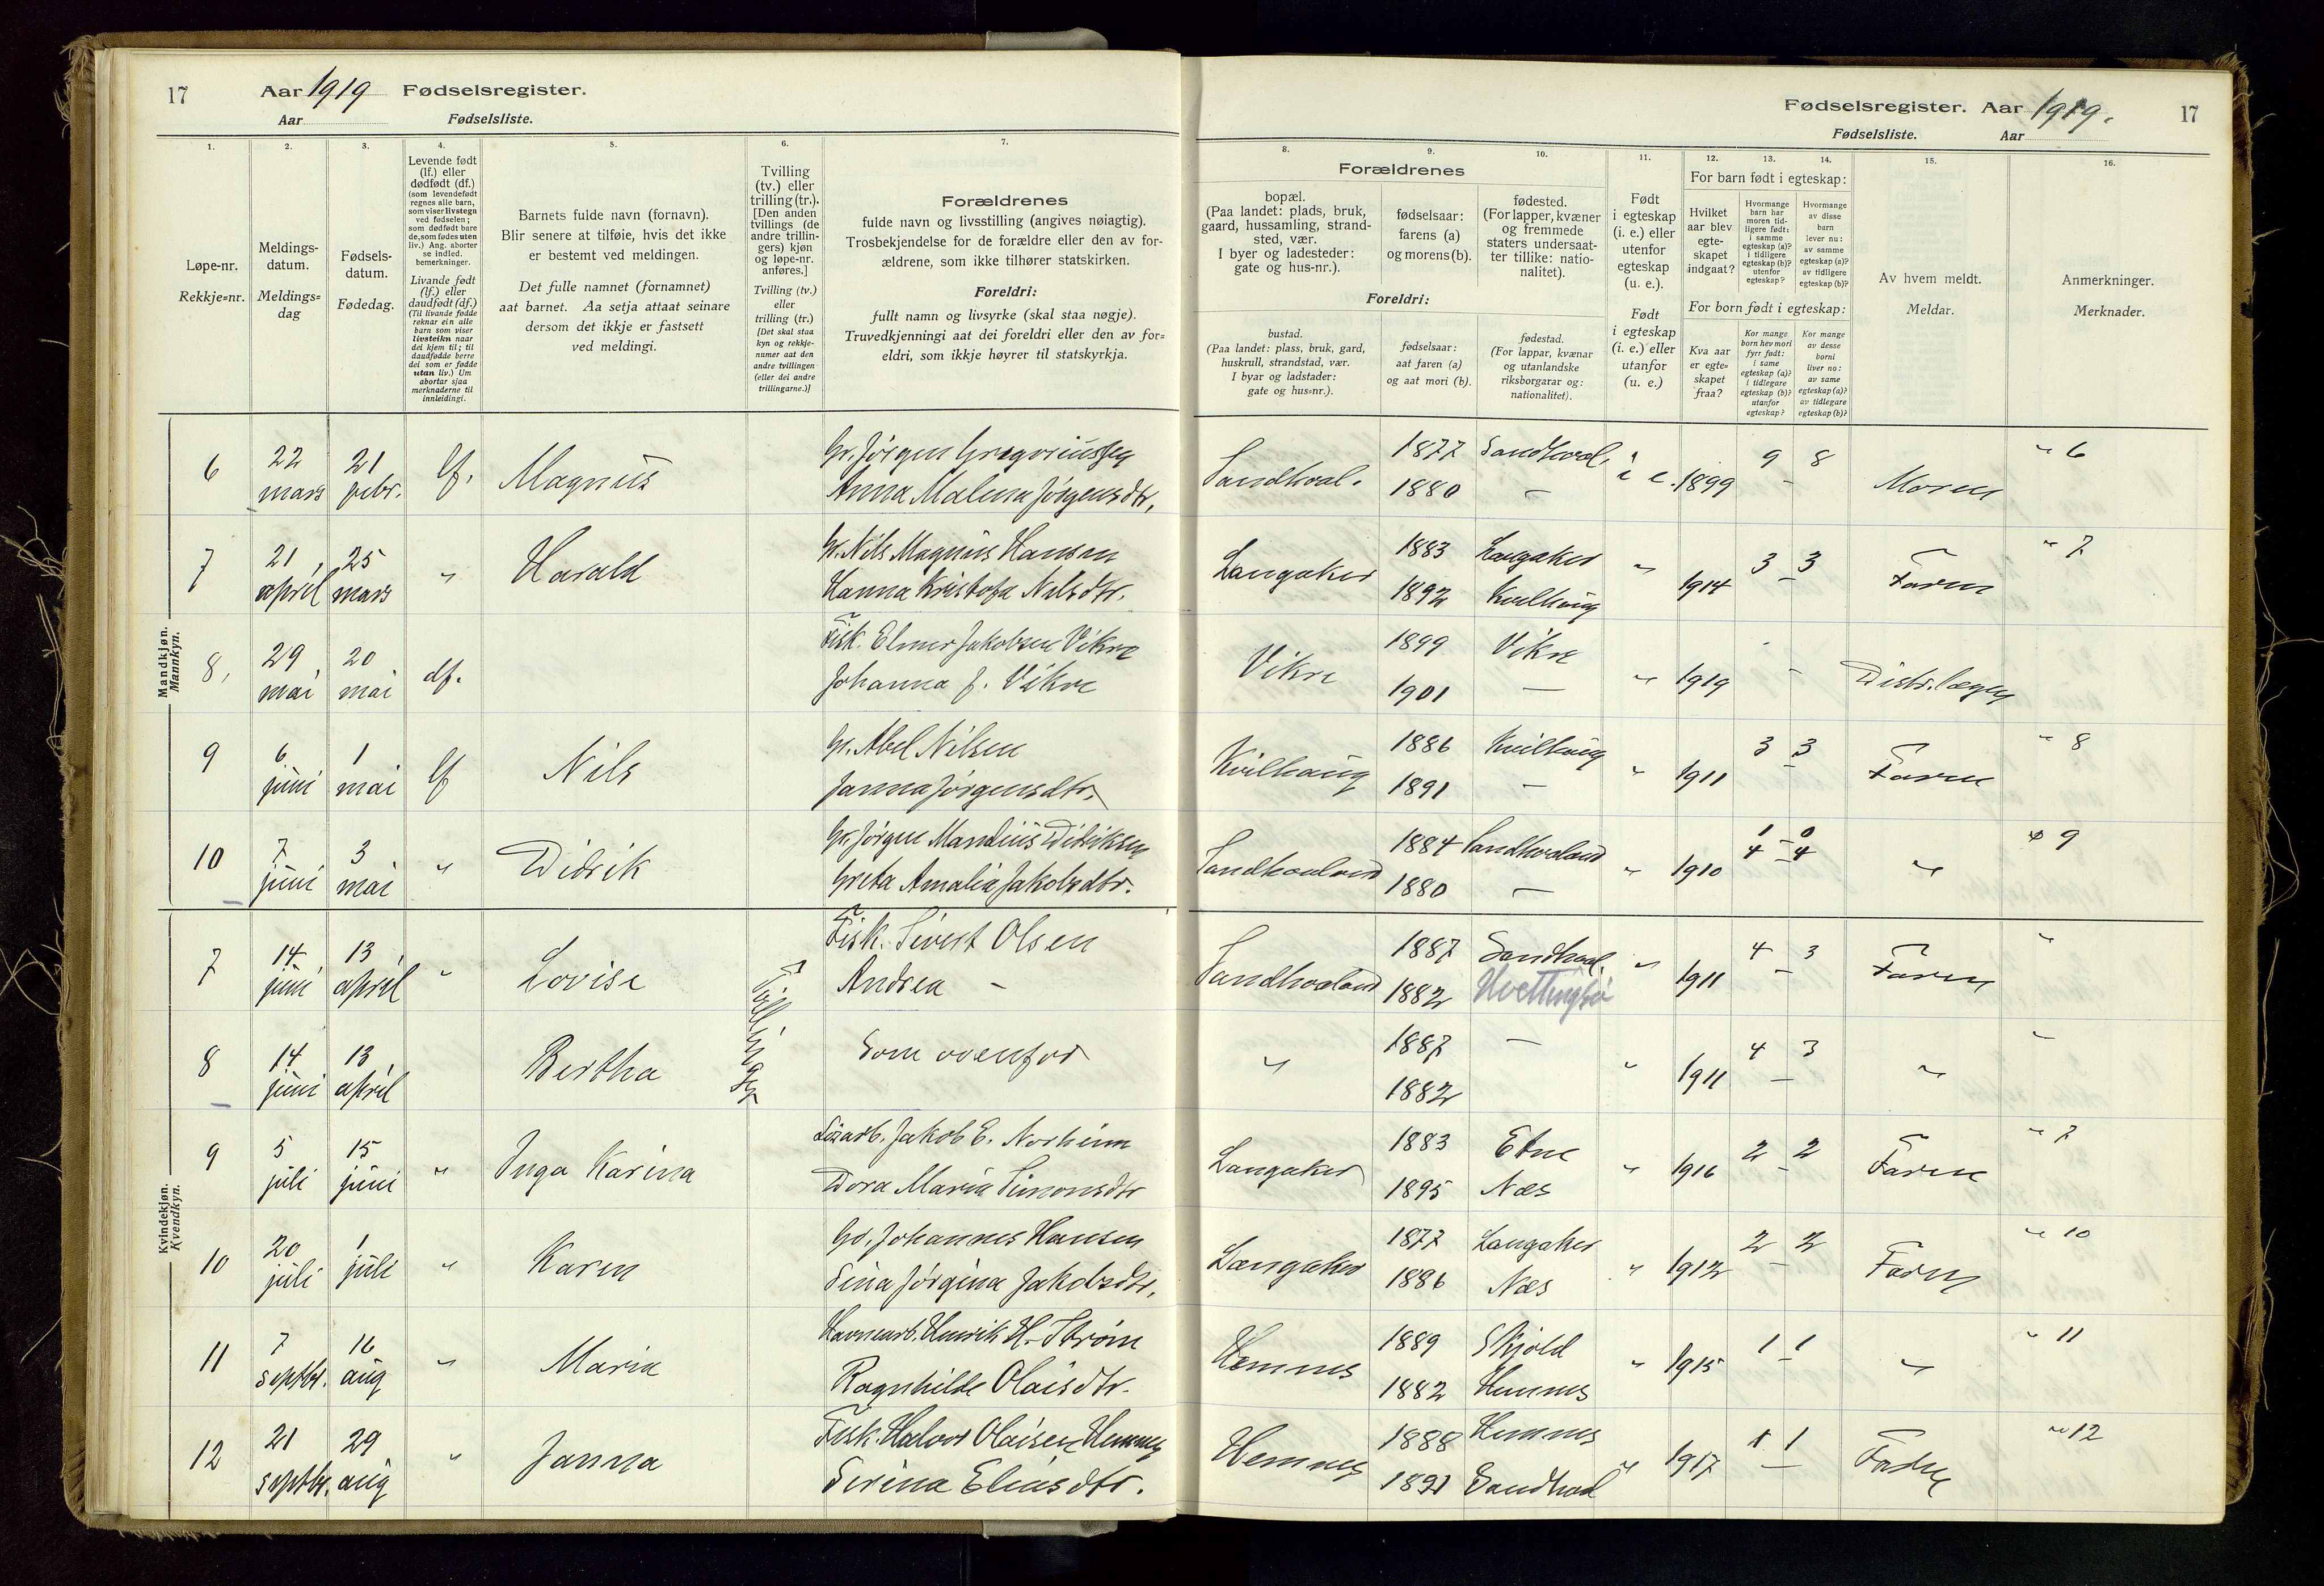 17 Aar 1919 Fødselsregister.
Aar Fødselsliste.
Fødselsregister. Aar 1919. 17
Fødselsliste. Aar
1. 2. 3. 4. 5. 6. 7. 8. 9. 10. 11. 12. 13. 14. 15. 16.
Løpe-nr.
Rekkje=nr.
Meldings-
datum.
Meldings=
dag
Fødsels-
datum.
Fødedag.
Levende født
(lf.) eller
dødfødt (df.)
(som levendefødt
regnes alle barn,
som viser livstegn
ved fødselen;
som dødfødt bare
de, som fødes uten
liv.) Ang. aborter
se indled.
bemerkninger.
Livande født
(lf.) eller
daudfødt (df.)
(Til livande fødde
reknar ein alle
barn som viser
livsteikn naar
dei kjem til; til
daudfødde berre
dei som er fødde
utan liv.) Um
abortar sjaa
merknaderne til
innleidingi.
Barnets fulde navn (fornavn).
Blir senere at tilføie, hvis det ikke
er bestemt ved meldingen.
Det fulle namnet (fornamnet)
aat barnet. Aa setja attaat seinare
dersom det ikkje er fastsett
ved meldingi.
Tvilling
(tv.) eller
trilling (tr.).
[Den anden
tvillings (de
andre trillin-
gers) kjøn
og løpe-nr.
anføres.]
Tvilling (tv.)
eller
trilling (tr.)
[Det skal staa
kyn og rekkje-
numer aat den
andre tvillingen
(eller dei andre
trillingarne.)]
Forældrenes
fulde navn og livsstilling (angives nøiagtig).
Trosbekjendelse for de forældre eller den av for-
ældrene, som ikke tilhører statskirken.
Foreldri:
fullt namn og livsyrke (skal staa nøgje).
Truvedkjenningi aat dei foreldri eller den av for=
eldri, som ikkje høyrer til statskyrkja.
Forældrenes
bopæl.
(Paa landet: plads, bruk,
gaard, hussamling, strand-
sted, vær.
I byer og ladesteder:
gate og hus-nr.).
fødselsaar:
farens (a)
og morens (b).
fødested.
(For lapper, kvæner
og fremmede
staters undersaat-
ter tillike: natio-
nalitet).
Foreldri:
bustad.
(Paa landet: plass, bruk, gard,
huskrull, strandstad, vær.
I byar og ladstader:
gate og hus=nr.).
fødselsaar:
aat faren (a)
og aat mori (b).
fødestad.
(For lappar, kvænar
og utanlandske
riksborgarar og:
nationalitet).
Født
i egteskap
(i. e.) eller
utenfor
egteskap
(u. e.).
Født
i egteskap
(i. e.) eller
utanfor
(u. e.)
For barn født i egteskap:
Hvilket
aar blev
egte-
skapet
indgaat?
Hvormange
barn har
moren tid-
ligere født:
i samme
egteskap (a)?
i tidligere
egteskap (b)?
utenfor
egteskap?
Hvormange
av disse
barn
lever nu:
av samme
egteskap (a)?
av tidligere
egteskap (b)?
For born født i egteskap:
Kva aar
er egte=
skapet
fraa?
Kor mange
born hev mori
fyrr født:
i same
egteskap (a)?
i tidlegare
egteskap (b)?
utanfor
egteskap?
Kor mange
av desse
borni
liver no:
av same
egteskap (a)?
av tidlegare
egteskap (b)?
Av hvem meldt.
Meldar.
Anmerkninger.
Merknader.
Mandkjøn.
Mannkyn.
6 22 mars 21 febr. lf. Magnus
Gr. Jørgen Gregoriussen
Anna Malena Jørgensdtr.
Sandhval. 1877 Sandhval. i e. 1899 9 - 8 Moren " 6
1880 —
7 21 april 25 mars " Harald
Gr. Nils Magnus Hansen
Hanna Kristofa Nilsdtr.
Langaker 1883 Langaker " 1914 3 - 3 Faren " 7
1892 Kvilhaug
8, 29 mai 20 mai df.
Fisk. Elmer Jakobsen Vikre
Johanna f. Vikre
Vikre 1899 Vikre " 1919 - Distr.lægen
1901 —
9 6 juni 1 mai lf Nils
Gr. Abel Nilsen
Janna Jørgensdtr.
Kvilhaug 1886 Kvilhaug " 1911 3 - 3 Faren " 8
1891 —
10 7 juni 3 mai " Didrik
Gr. Jørgen Mandius Didriksen
Greta Amalia Jakobsdtr.
Sandhvaland 1884 Sandhvaland " 1910 1 - 0 4 - 4 " 9
1880 —
Kvindekjøn.
Kvendkyn.
7 14 juni 13 april " Lovise Tvillinger
Fisk. Sivert Olsen
Andrea -
Sandhvaland 1887 Sandhval. " 1911 4 - 3 Faren "
1882 Hvettingbø
8 14 juni 13 april Bertha
Som ovenfor
" 1887 — " 1911 4 - 3 " "
1882
9 5 juli 15 juni " Inga Karina
Jakob E. Norheim
Dora Maria Simonsdtr
Langaker 1883 Etne " 1916 2 - 2 Faren " 7
1895 Næs
10 20 juli 1 juli " Karen
Gr. Johannes Hansen
Sina Jørgina Jakobsdtr.
Langaker 1877 Langaker " 1912 2 - 2 Faren " 10
1886 Næs
11 7 septbr. 16 aug " Maria
Havnearb. Henrik H. Strøm
Ragnhilde Olaisdtr.
Hemnes 1889 Skjold " 1915 1 - 1 " " 11
1882 Hemnes
12 21 septbr. 29 aug " Janna
Fisk. Halvor Olaisen Hemnes
Serina Eliasdtr.
Hemnes 1888 Hemnes " 1917 1 - 1 Faren " 12
1891 Sandhval